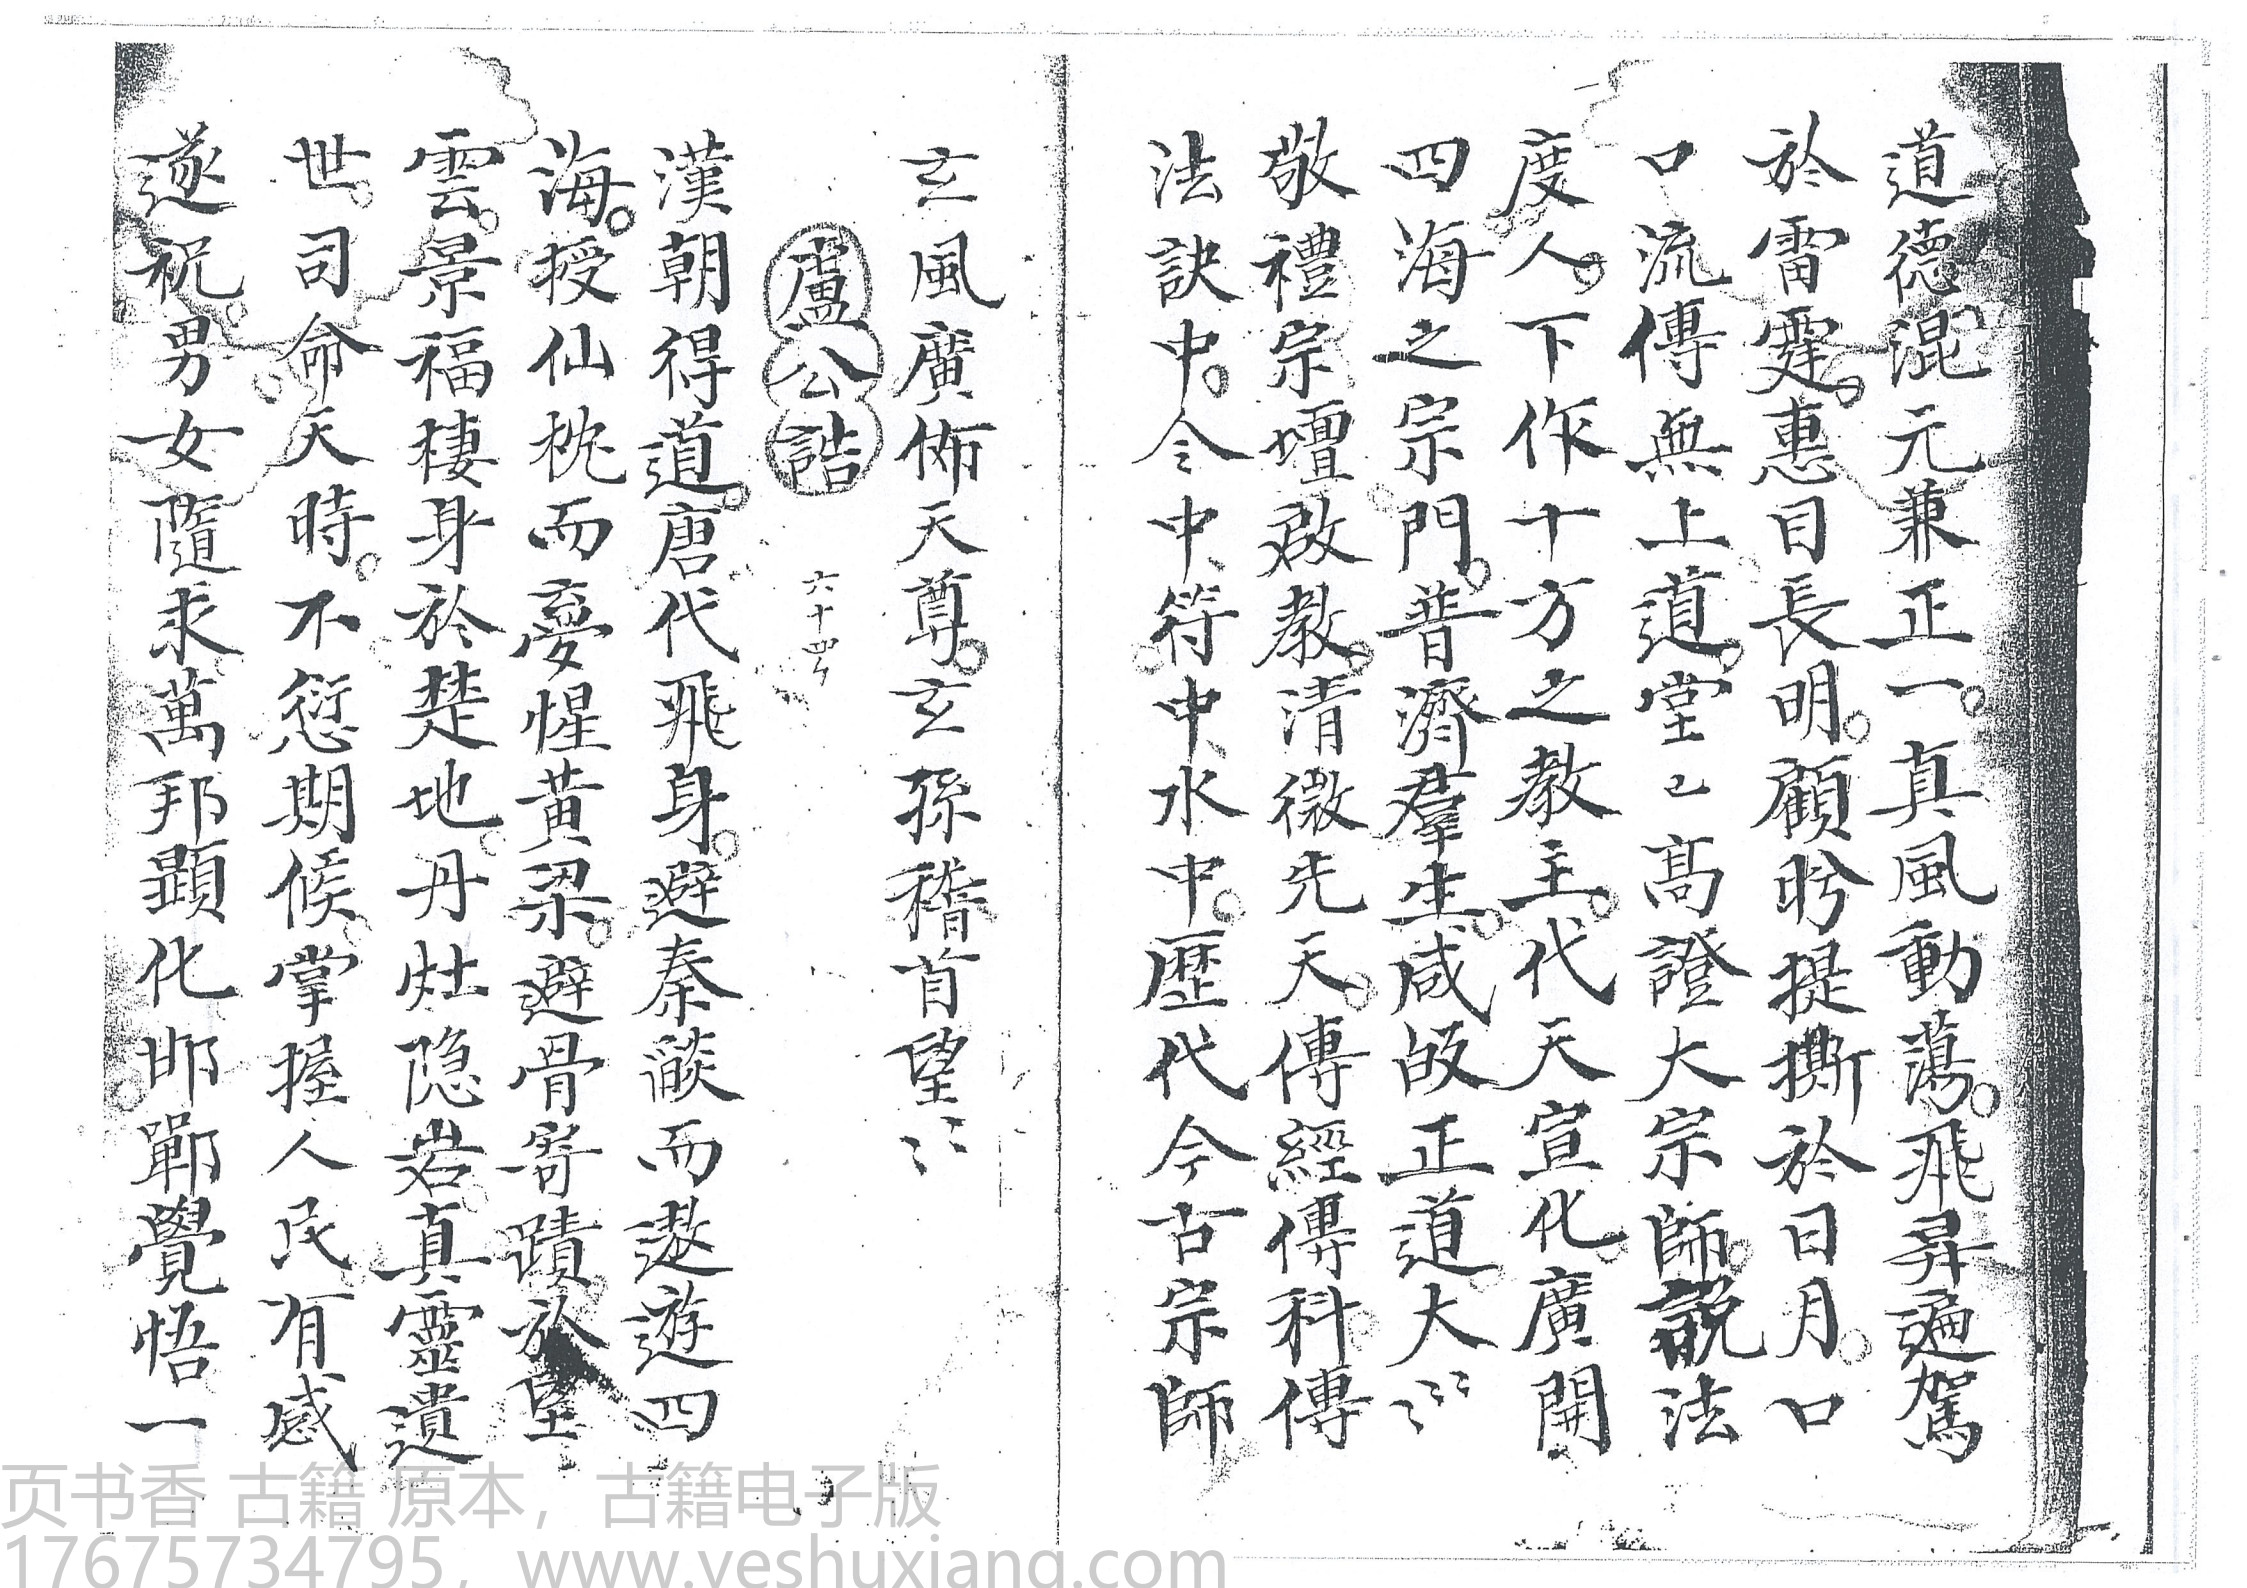 道德混元兼正一。真風動蕩。飛昇遍駕
於雷霆。惠目長明。顧盻提撕於日月。口
口流傳無上道。堂〻高證大宗師。說法
度人。下作十方之教主。代天宣化。廣開
四海之宗門。普濟群生。咸皈正道大〻〻
敬禮宗壇啟教。清微先天。傳經傳科傳
法訣中。令中符中水中。歷代今古宗師
玄風廣佈天尊。玄孫稽首望〻〻
盧公誥 六十四
漢朝得道。唐代飛身。避秦燄而遨遊四
海。授仙枕而夢惺黃梁。避骨寄蹟於望
雲。景福棲身於楚地。丹灶隐岩真靈遺
世。司命天時。不愆期候。掌握人民有感
遂祝。男女隨求萬邦顕化邯鄲覺悟一
页书香 古籍 原本，古籍电子版
17675734795，www.yeshuxiang.com